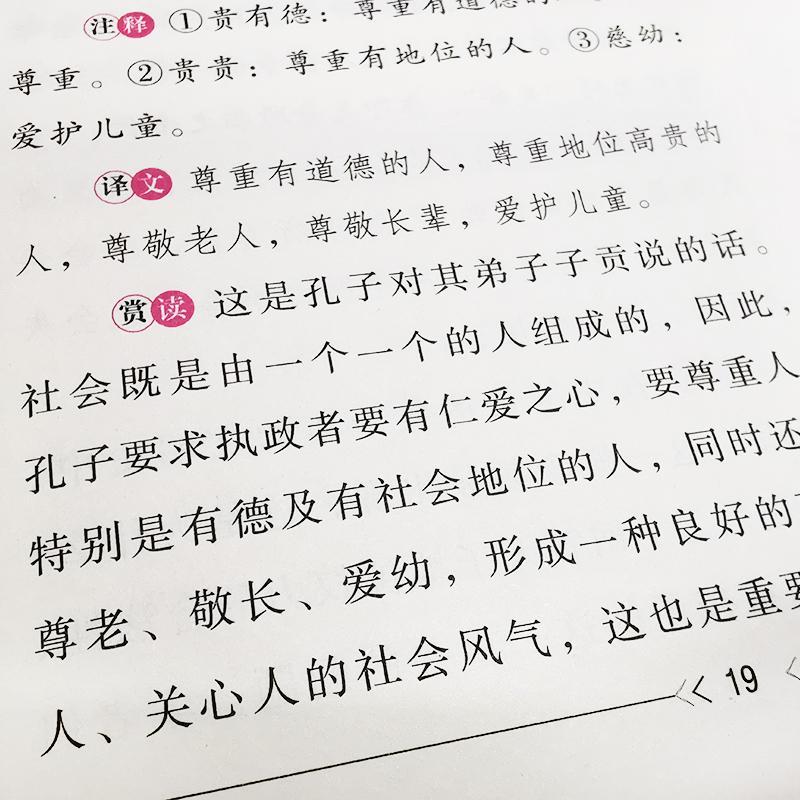 注释 ①贵有德：尊重有道德的
尊重。②贵贵：尊重有地位的人。③慈幼：
爱护儿童。
译文 尊重有道德的人，尊重地位高贵的
人，尊敬老人，尊敬长辈，爱护儿童。
赏读 这是孔子对其弟子子贡说的话。
社会既是由一个一个的人组成的，因此，
孔子要求执政者要有仁爱之心，要尊重人
特别是有德及有社会地位的人，同时还
尊老、敬长、爱幼，形成一种良好的
人、关心人的社会风气，这也是重要
19